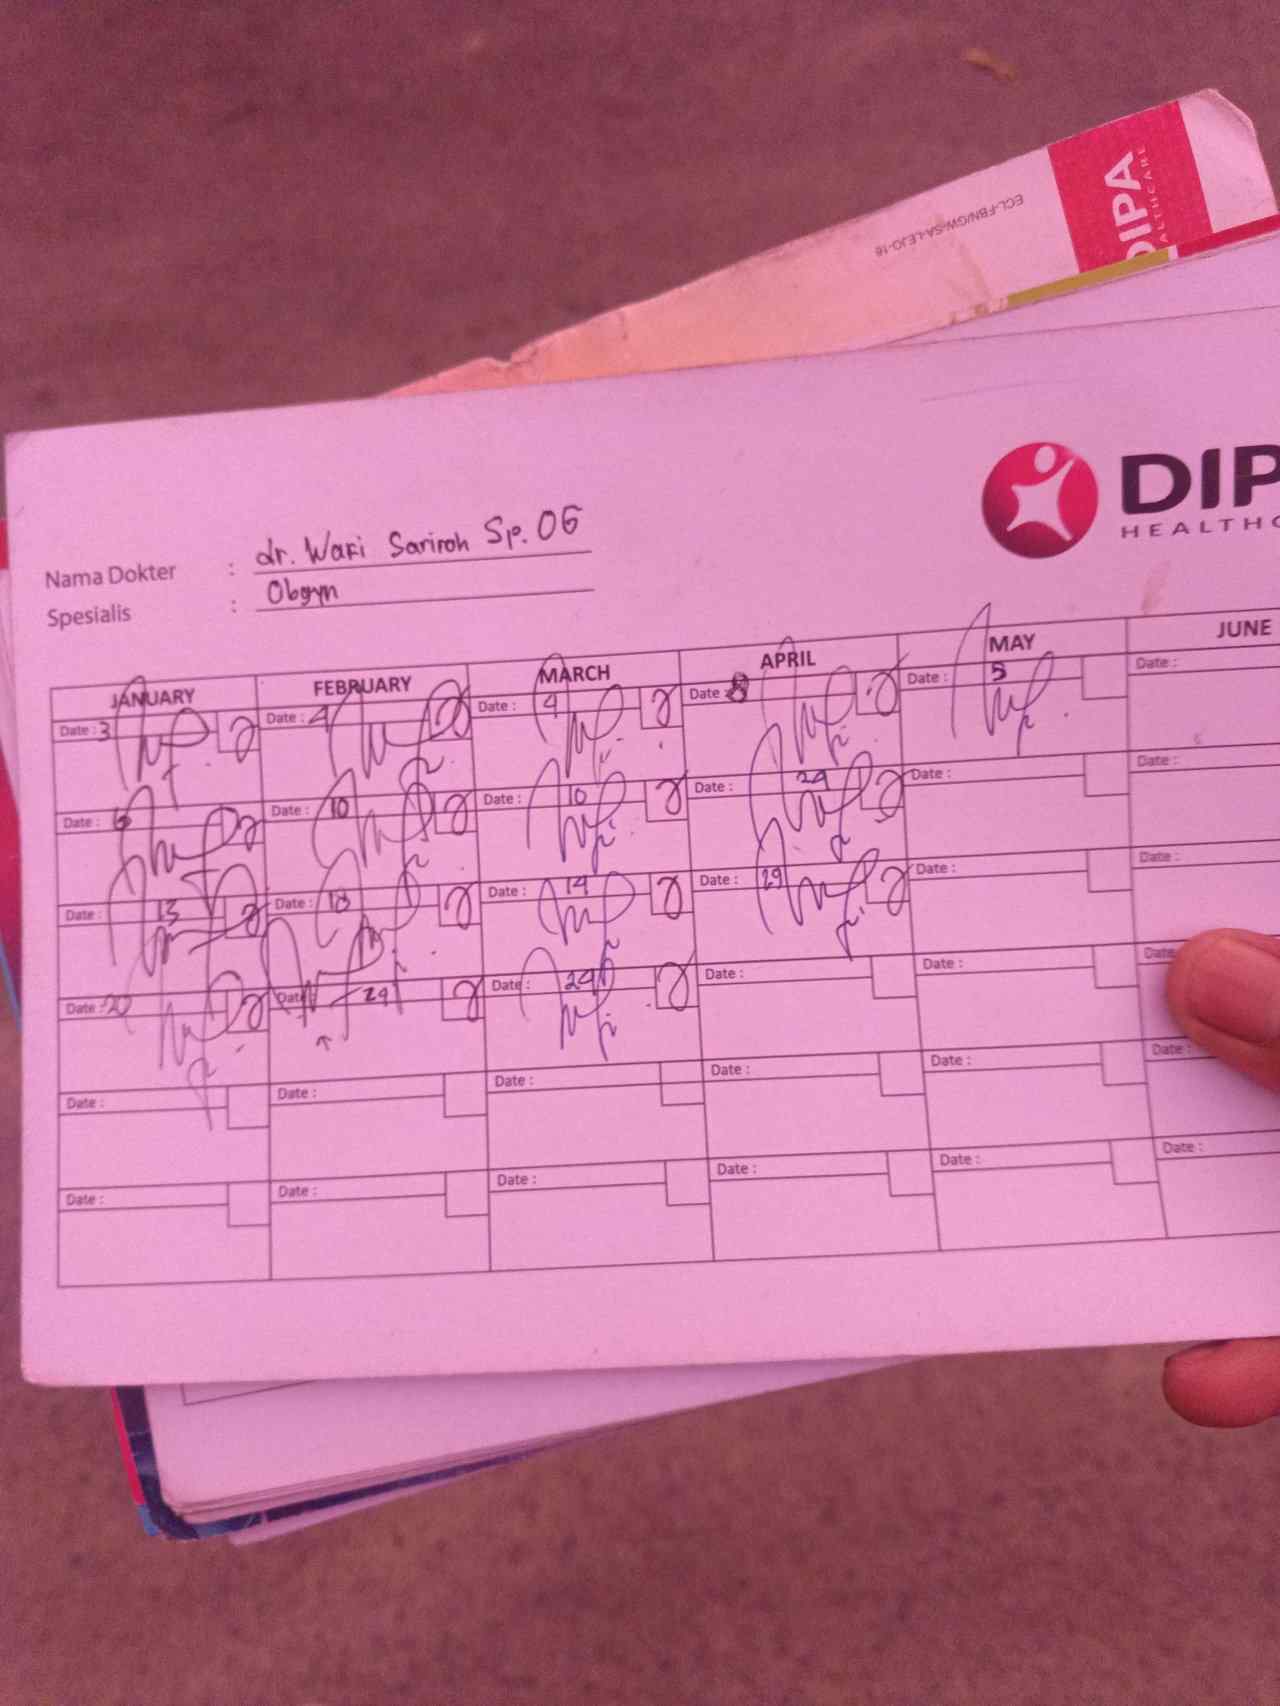 DIPA
ALTHCARE
ECL-FBN/GW-SA-LEJO-16
DIP
HEALTHC
Nama Dokter : dr. Wafi Sariroh Sp. OG
Spesialis : Obgyn
JANUARY FEBRUARY MARCH APRIL MAY JUNE
Date : 3 Date : 4 Date : 4 Date : 8 Date : 5 Date :
Date : 6 Date : 10 Date : 10 Date : 24 Date : Date :
Date : 13 Date : 18 Date : 14 Date : 29 Date : Date :
Date : 20 Date 24 Date : 24 Date : Date : Date
Date : Date : Date : Date : Date : Date :
Date : Date : Date : Date : Date : Date :